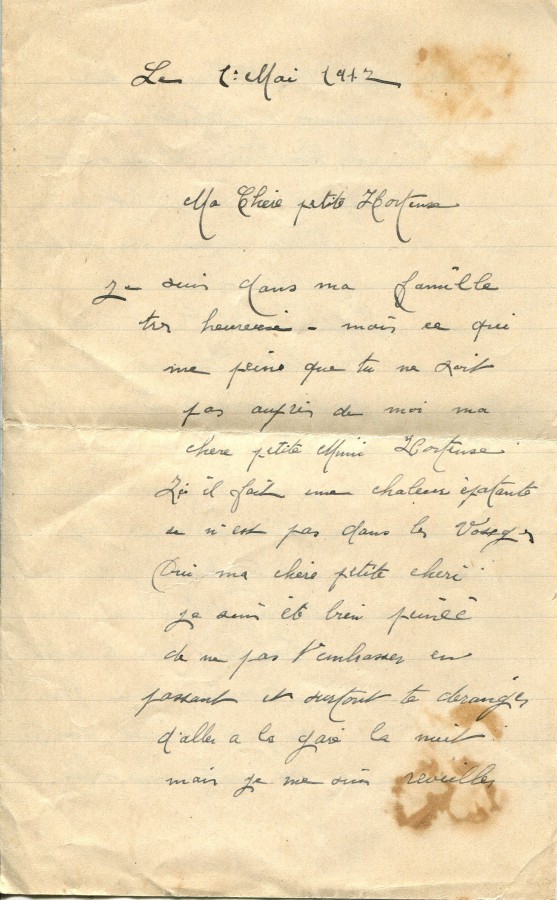 Le 1: Mai 1917
Ma Chère petite Hortense
Je suis dans ma famille
tres heureuse - mais ce qui
me peine que tu ne soit
pas auprès de moi ma
chere petite Mimi Hortense.
Ici il fait une chaleur épatante
se n'est pas dans les Vosges
Oui ma chère petite cheri
je suis été bien peinéé
de ne pas t'embrasser en
passant et surtout te deranger
d'aller a la gare la nuit
mais je me suis reveiller